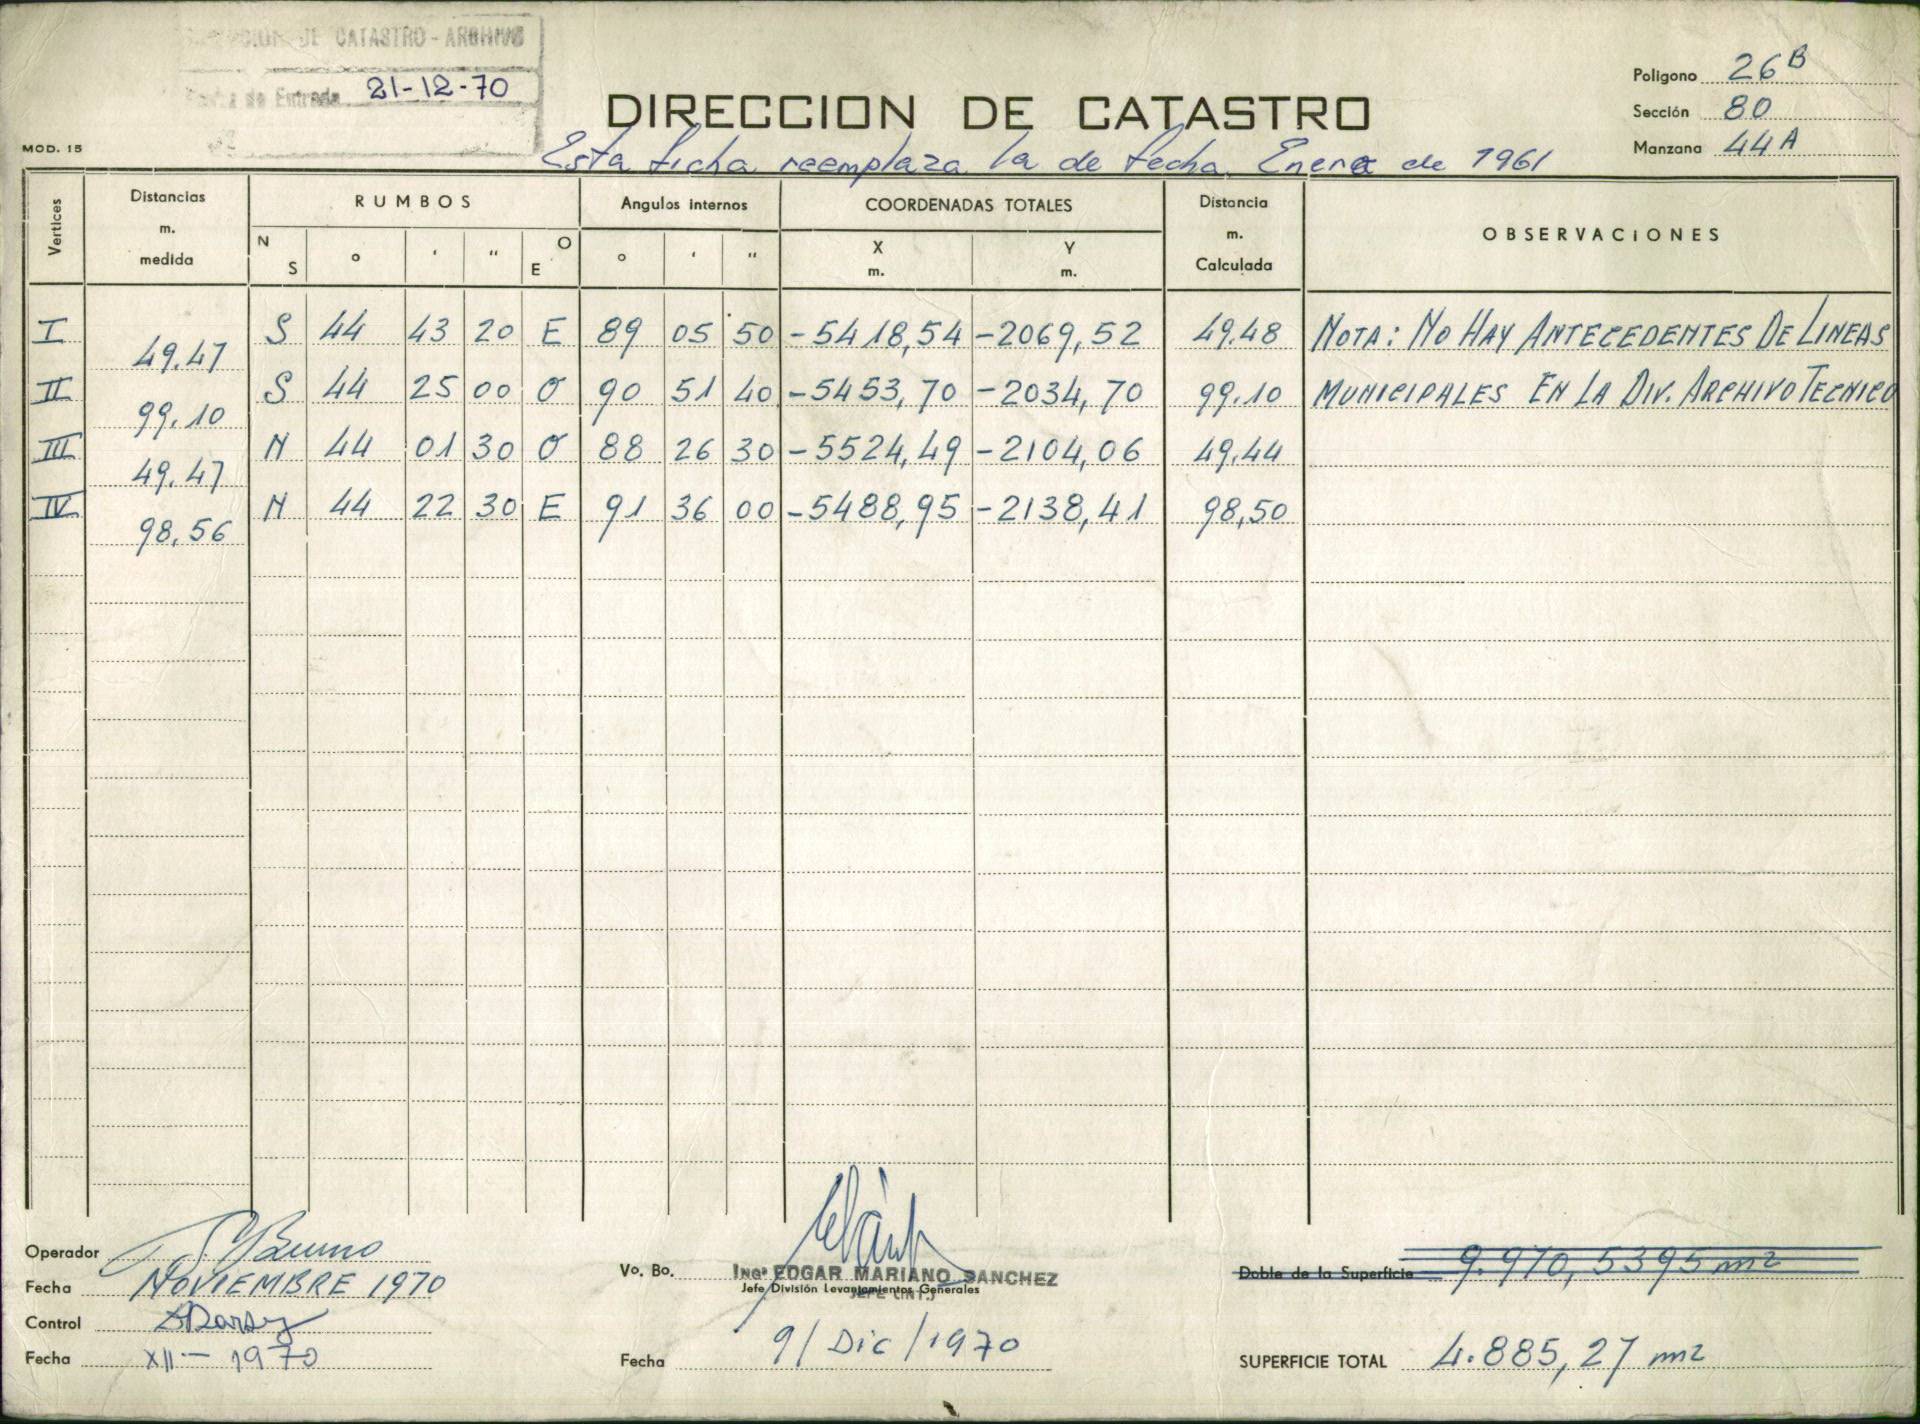 DE CATASTRO - ARCHIVO
Fecha de Entrada 21-12-70
MOD. 15
DIRECCION DE CATASTRO
Esta ficha reemplaza la de fecha Enero de 1961
Poligono 26B
Sección 80
Manzana 44A
Vertices Distancias m. medida RUMBOS N S ° ' " O E Angulos internos ° ' " COORDENADAS TOTALES X m. Y m. Distancia m. Calculada OBSERVACIONES
I S 44 43 20 E 89 05 50 -5418,54 -2069,52 49.48 NOTA: NO HAY ANTECEDENTES DE LINEAS
49.47
II S 44 25 00 O 90 51 40 -5453,70 -2034,70 99.10 MUNICIPALES EN LA DIV. ARCHIVO TECNICO
99.10
III N 44 01 30 O 88 26 30 -5524,49 -2104,06 49.44
49.47
IV N 44 22 30 E 91 36 00 -5488,95 -2138,41 98,50
98,56
Operador Bruno
Fecha NOVIEMBRE 1970
Control
Fecha XII - 1970
Vo. Bo. INGº EDGAR MARIANO SANCHEZ
JEFE (INT.)
Jefe División Levantamientos Generales
Fecha 9/Dic/1970
Doble de la Superficie 9.970,5395 m2
SUPERFICIE TOTAL 4.885,27 m2